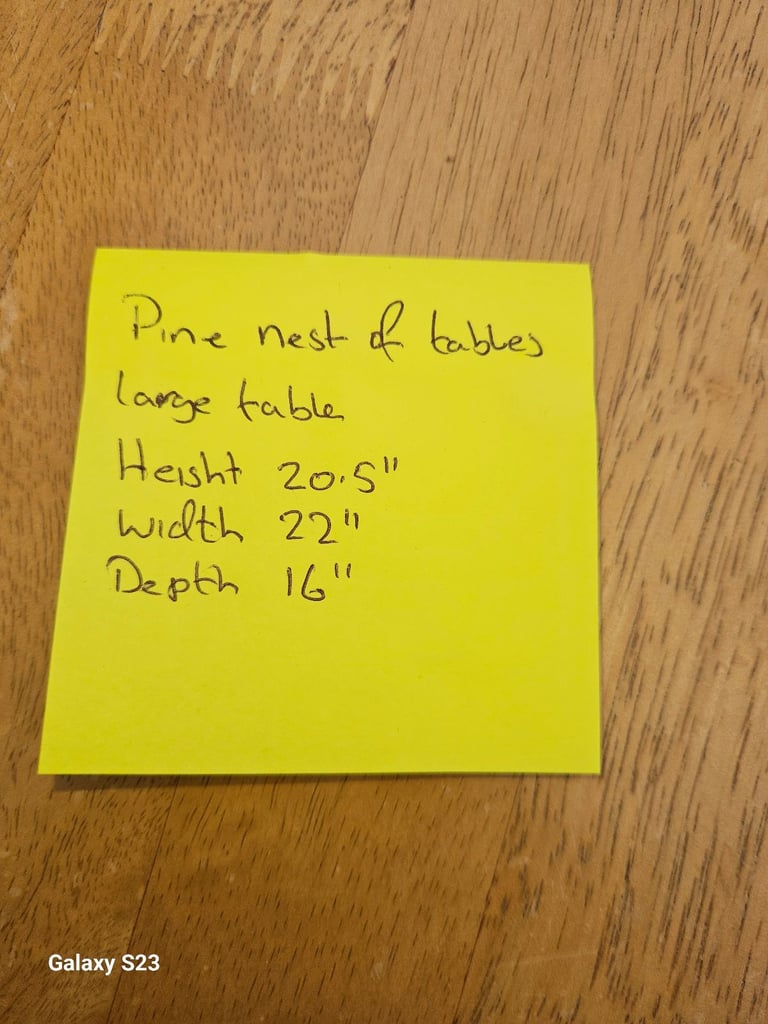 Pine nest of tables
large table
Height 20.5"
width 22"
Depth 16"
Galaxy S23